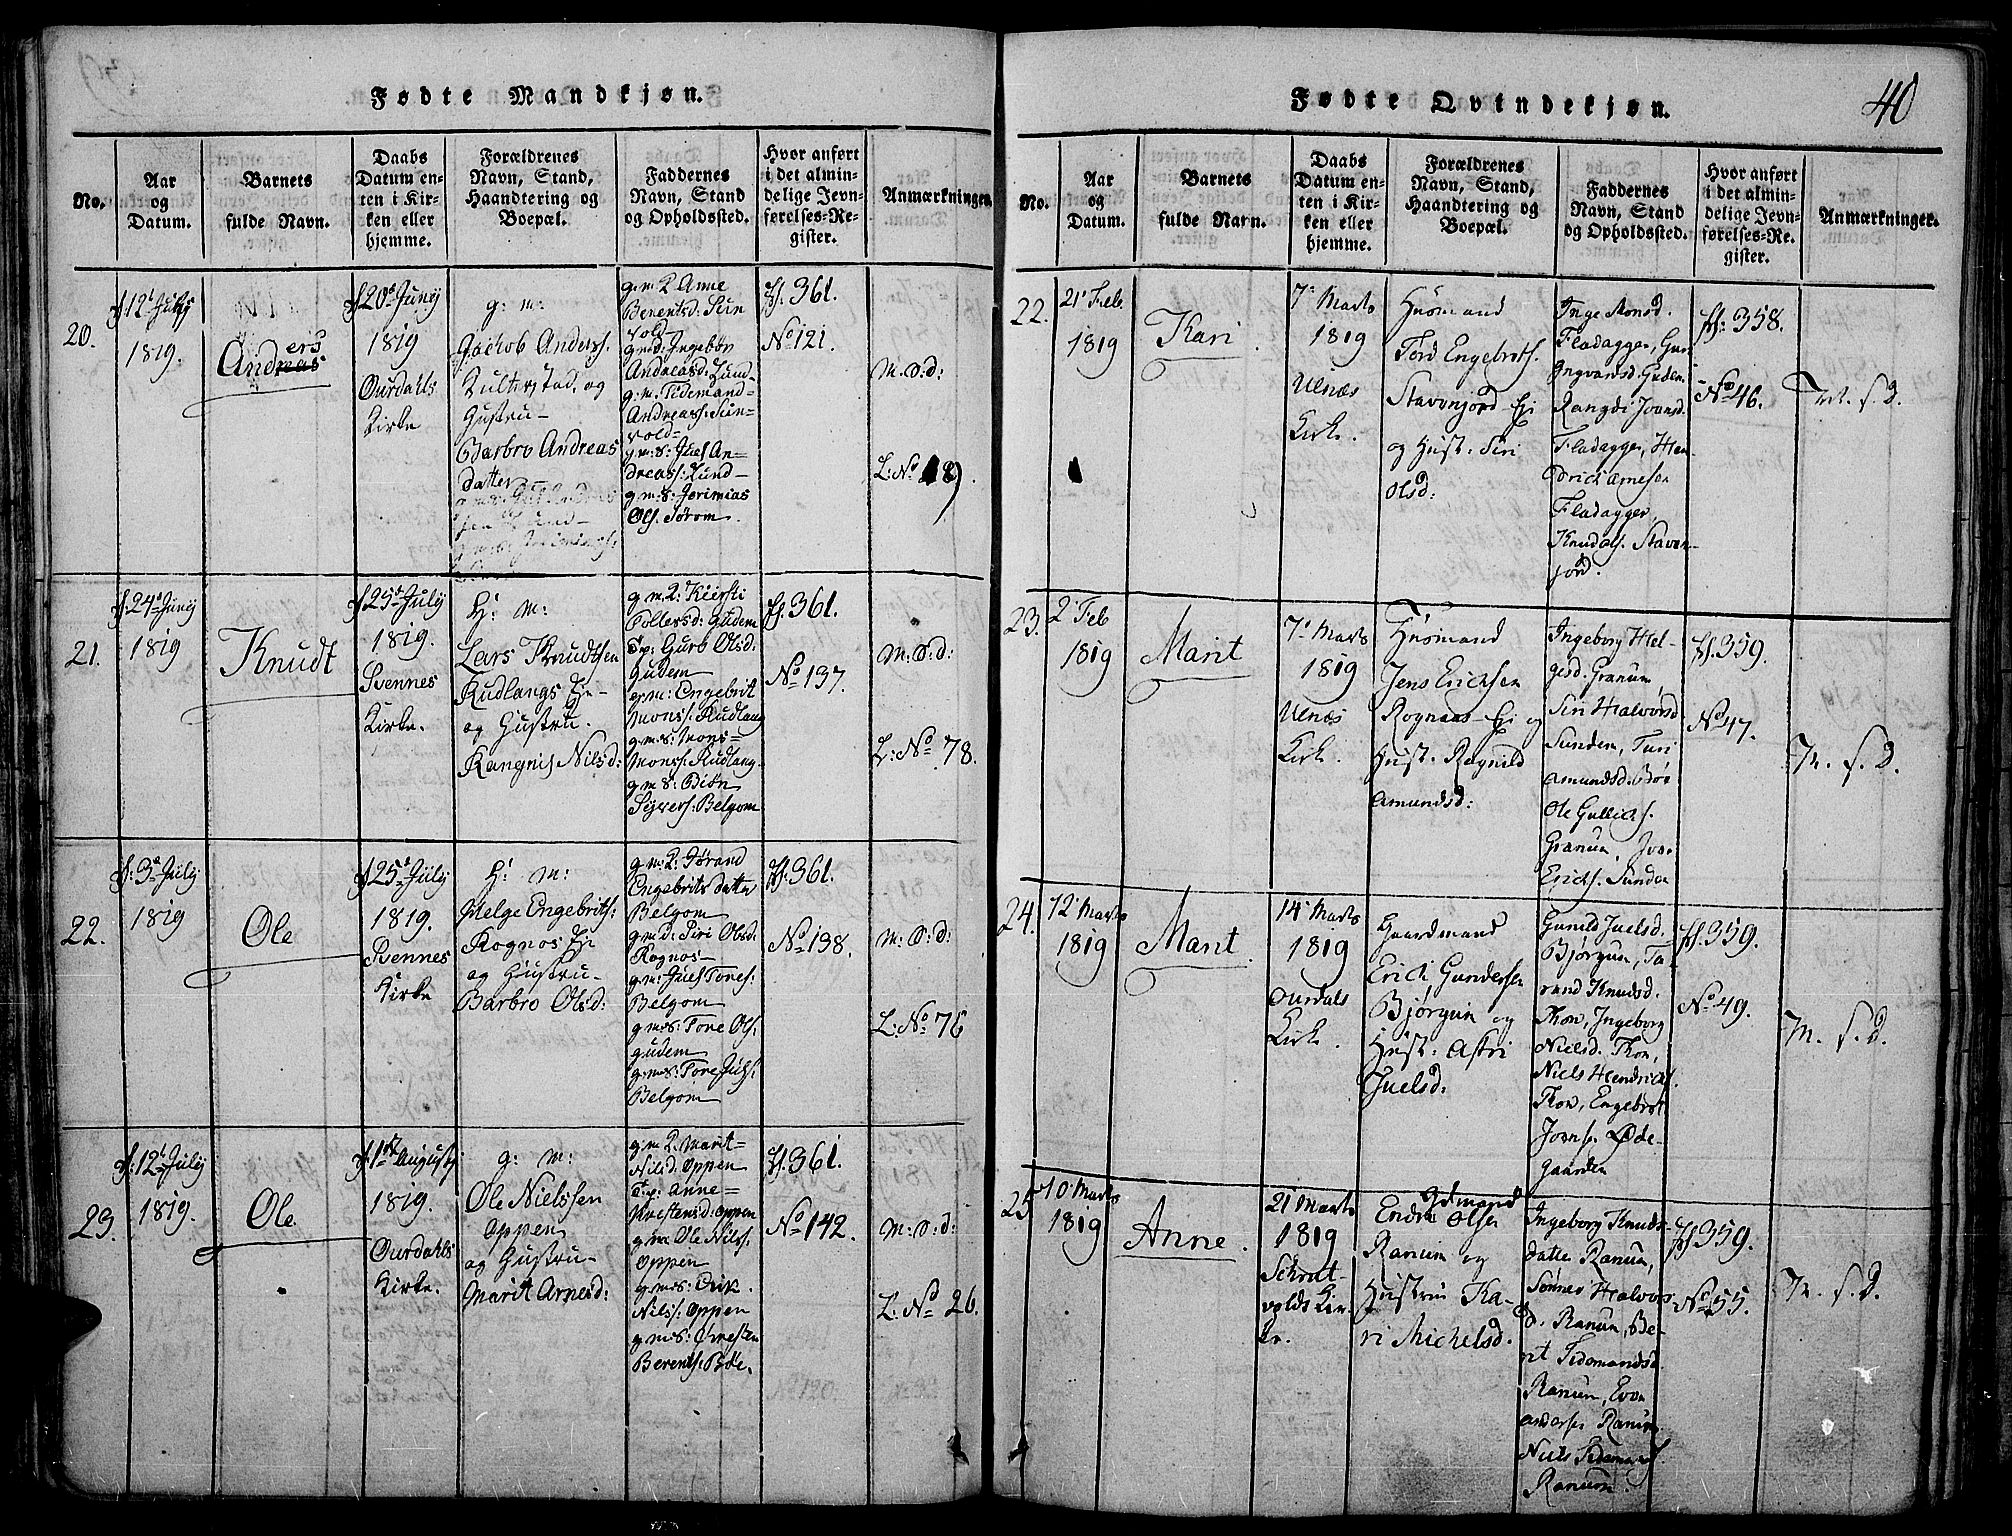 Fødte Mandkjøn.
No.
Aar
og
Datum.
Barnets
fulde Navn.
Daabs
Datum en-
ten i Kir-
ken eller
hjemme.
Forældrenes
Navn, Stand,
Haandtering og
Boepæl.
Faddernes
Navn, Stand
og Opholdssted.
Hvor anført
i det almin-
delige Jevn-
førelses-Re-
gister.
Anmærkninger.
20.
1819.
Anders
1819
Ourdahls
Kirke
g: m:
Jackob Anders:
og
Hustru
Barbro Andreas
datter
g: m: 2 Anne
Andreas:
g. m: s: Juel An=
dreas: Lund
g m: s: Jerimias
Ols: Sørom
ff 361.
No 121.
M: O: d:
L: No
21.
f: 24de Juny
1819
Knudt
f: 25de July
1819.
Svennes
Kirke.
H: m:
Lars Knudtsen
Rudlangs Ei-
og Hustru.
Rangnil Nilsd:
g m 2: Kiersti
Tollersd: Gudem
T: p: Gurb Olsd:
Gudem
g: m: Engebrit
Mons: Rudlang
g m: s: Mons=
Mons: Rudlang.
g m s: Biøn
Syvers: Belgom
ff 361.
No 137.
M: O: d:
L: No 78.
22.
f: 3de July
1819
Ole
f 25de July
1819.
Svennes
Kirke
H: m:
Helge Engebrits:
Rognos Ei
og Hustru
Barbro Olsd:
g m: 2: Jørand
Engebrits datter
Belgom
g m d: Siri Olsd:
Rognos
g m: Juel Tones:
Belgom
g m s: Tore Ols:
gudem
g: m s: Tore Juls:
Belgom
ff 361.
No 138.
M: O: d:
L: No 76
23.
f: 12te July
1819.
Ole
f: 1ste Augusty
1819.
Ourdahls
Kirke.
g: m:
Ole Nielssen
oppen
og Hustru
Marit Arnesd:
g m 2. Marit=
Nilsd: oppen
T: p: Anne=
Kristensd: oppen
g m: Ole Nils:
oppen
g m s: Erik.
Nils: oppen
g m s: Cresten
Berents: Bøe.
ff 361.
No 142.
M: O: d:
L: No 26.
Fødte Qvindekjøn.
40
No.
Aar
og
Datum.
Barnets
fulde Navn.
Daabs
Datum en-
ten i Kir-
ken eller
hjemme.
Forældrenes
Navn, Stand,
Haandtering og
Boepæl.
Faddernes
Navn, Stand
og Opholdssted.
Hvor anført
i det almin-
delige Jevn-
førelses-Re-
gister.
Anmærkninger.
22.
21 Feb
1819
Kari
7 Marts
1819
Ulnæs
Kirk.
Huusmand
Tord Engebrits.
Stavenjord Ei
og Hust. Siri
Olsd:
Inge Monsd.
Fladagger, Gun
Ingvarsd. Guden.
Rangdi Joensd.
Fladagger, Hen-
drich Arnesen
Fladagger,
Knud Ols. Staven-
jord.
ff: 358.
No 46.
M. f. D.
23.
2 Feb
1819
Marit
7 Marts
1819
Ulnæs
Kirk.
Huusmand
Jens Erichsen
Rognaas Ei og
Hust. Ragnild
Amundsd:
Ingeborg Hel-
gesd. Granum
Siri Halvorsd
Sunden, Turi
Amundsd. Bøe
Ole Gullichs.
Granum, Iver
Erichs. Sunden
ff 359.
No 47.
M. f. D.
24.
12 Marts
1819
Marit
14 Marts
1819
Ourdals
Kirk.
Gaardmand
Erich Gundersen
Bjørgum og
Hust: Astri
Juelsd.
Gunild Juelsd.
Bjørgum, Ta-
rand Knudsd.
Thon, Ingeborg
Nielsd. Thon,
Niels Hendrichs.
Thon, Engebret
Joens. Øde-
gaarden
ff 359.
No 49.
M. f. D.
25.
10 Marts
1819
Anne
21 Marts
1819
Schrut-
volds Kir-
ke.
Gdmand
Endre Olsen
Ranum og
Hustru Ka-
ri Michelsd.
Ingeborg Knuds-
datter Ranum,
Sønner Halvors-
d. Ranum, Be-
rit Tidemandsd.
Ranum, Even
Andersen Ranum
Niels Tidemands.
Ranum.
ff 359.
No 55.
M. f. D.